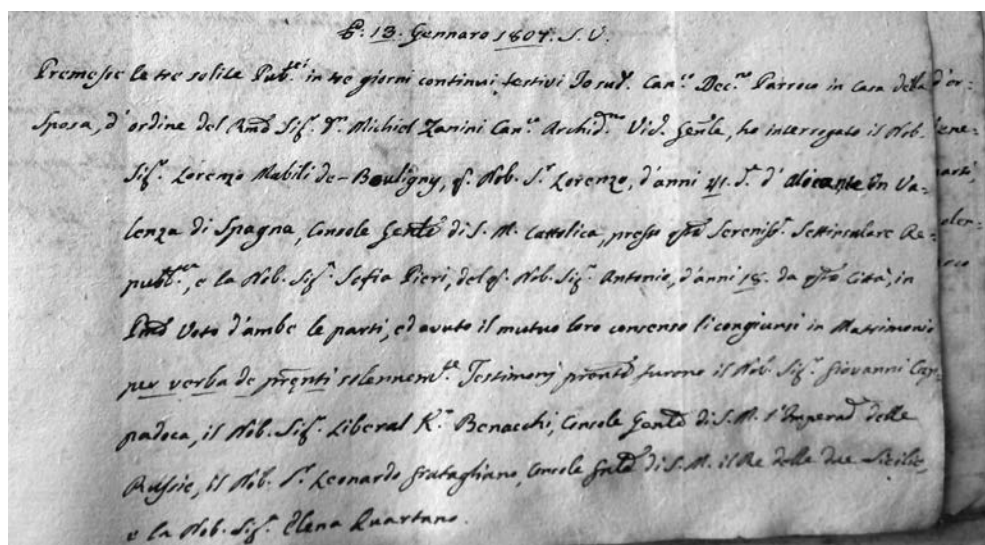 13. Gennaro 1807. S. V.
Premesse le tre solite Pub.ni in tre giorni continui festivi Io sud.o Can.co Dec.no Parroco in Casa della
Sposa, d'ordine del Rmo Sig.r D.n Michiel Zanini Can.co Archid.no Vic.o Genle, ho interrogato il Nob.
Sig.r Lorenzo Mabili de-Bouligny, q. Nob. S.r Lorenzo, d'anni 41. d'Alicante in Va-
lenza di Spagna, Console Genle di S. M. Cattolica, presso qsta Sereniss.a Settinsulare Re-
pubb.ca, e la Nob. Sig.a Sofia Pieri, del q. Nob. Sig.r Antonio, d'anni 18. da qsta Città, in
voto d'ambe le parti, ed avuto il mutuo loro consenso li congiunsi in Matrimonio
per verba de prnti solennem.te Testimonj furono il Nob. Sig.r Giovanni Cap-
padoca, il Nob. Sig.r Liberal K.r Benacchi, Console Genle di S. M. l'Imperad.e delle
Russie, il Nob. S.r Leonardo Gratagliano, Console Gnle di S. M. il Re delle due Sicilie,
e la Nob. Sig.a Elena Quartano.